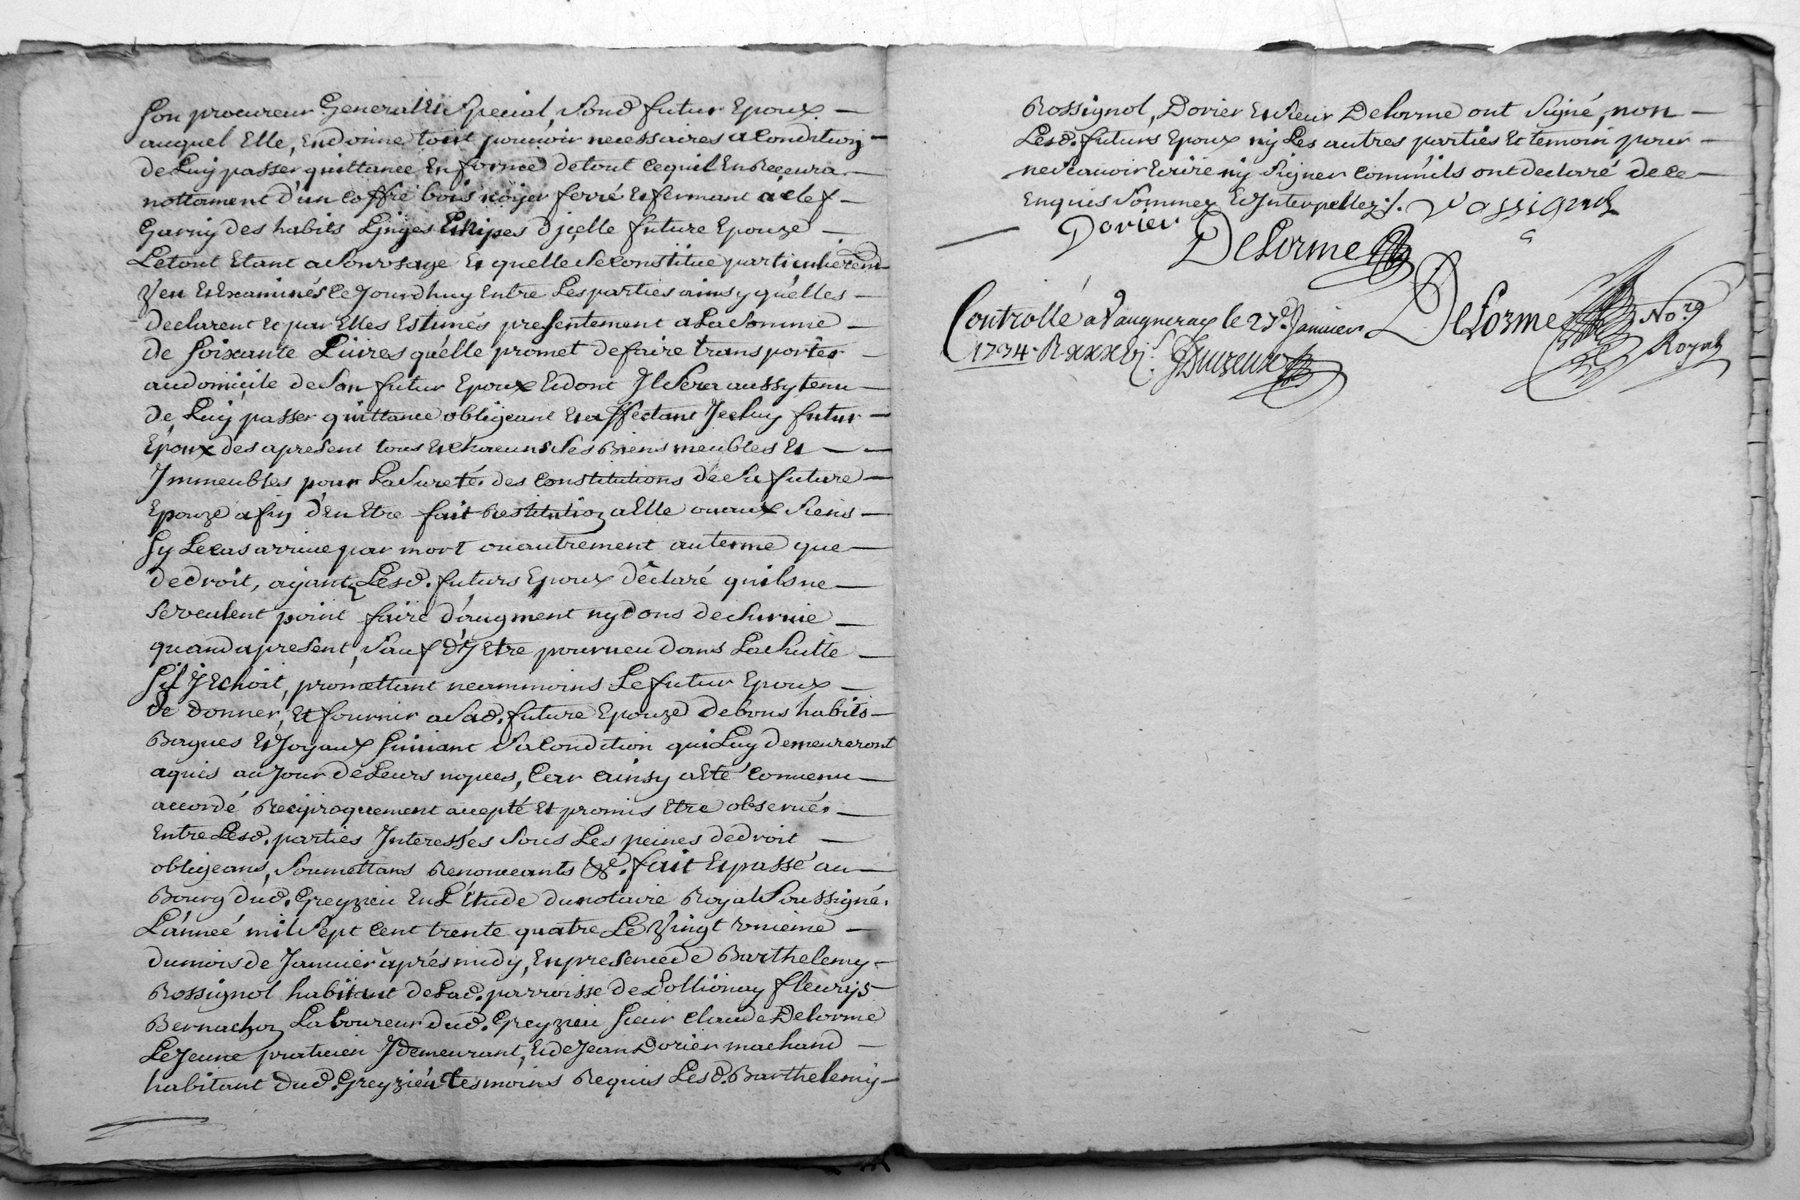 Son procureur General et Special, Sond futur Epoux —
auquel Elle, En donne tout pouvoir necessaires a Condition —
de Luy passer quittance En forme de tout Cequil En Recevra —
nottament d'un Coffre bois noyer ferré et fermant a clef —
Garny des habits Linges Et nipes d'jcelle future Epouze —
Letout Etant a Son Usage Et quelle Se Constitüe particulierem.t
Et Examinés Ce Jourdhuy Entre Les parties ainsy quélles —
declarent et par Elles Estimés presentement a La Somme —
de Soixante Liures quélle promet de faire transportér —
au domicile de Son futur Epoux Et dont Jl Sera aussy tenu —
de Luy passer quittance obligeant et affectant Jceluy futur —
Epoux des apresent tous et chacuns Ses Biens meubles Et — —
Jmmeubles pour La Sureté des Constitutions de La future —
Epouze afin d'en Etre fait Restitution a Elle ou aux Siens —
Sy Le cas arriue par mort ou autrement au terme que —
de droit, ayant Lesd. futurs Epoux déclaré quils ne —
Se veulent point faire d'augment ny dons de Suruie —
quand apresent, Sauf d'y Etre pourueu dans La Suitte —
Sil J Echoit, promettant neammoins Le futur Epoux —
de donner, Et fournir a Sad. future Epouze de bons habits —
Bagues Et Joyaux Suiuant Sa Condition qui Luy demeureront
aquis au Jour de Leurs nopces, Car ainsy a Eté Conuenu —
accordé Reciproquement accepté Et promis Etre obserué. —
Entre Lesd. parties Interessés Sous Les peines de droit —
obligeans, Soumettans Renonceants &c. fait Et passé au —
Bourg dud. Greyzieu En L'Etude du notaire Royal Soussigné.
L'année mil Sept Cent trente quatre Le Vingt Unieme —
du mois de Januier après midy, En presence de Barthelemy —
Rossignol habitant de Lad. parroisse de Pollionay fleurys
Bernachon Laboureur dud. Greyzieu Sieur Claude Delorme
Le Jeune praticien J demeurant, Et de Jean Dorier machand —
habitant dud. Greyziéu tesmoins Requis Lesd. Barthelemy —
Rossignol, Dorier Et Sieur Delorme ont Signé, non —
Lesd. futurs Epoux ny Les autres parties Et temoin pour —
ne Scauoir Ecrire ny Signer Comm'ils ont declaré de ce —
Enquis Sommez Et Interpellez./. rossignol
— Dorier
Delorme
Delorme No.re
Royal
Controllé a Vaugneray le 23e. Januier
1734. R xxxvj s.